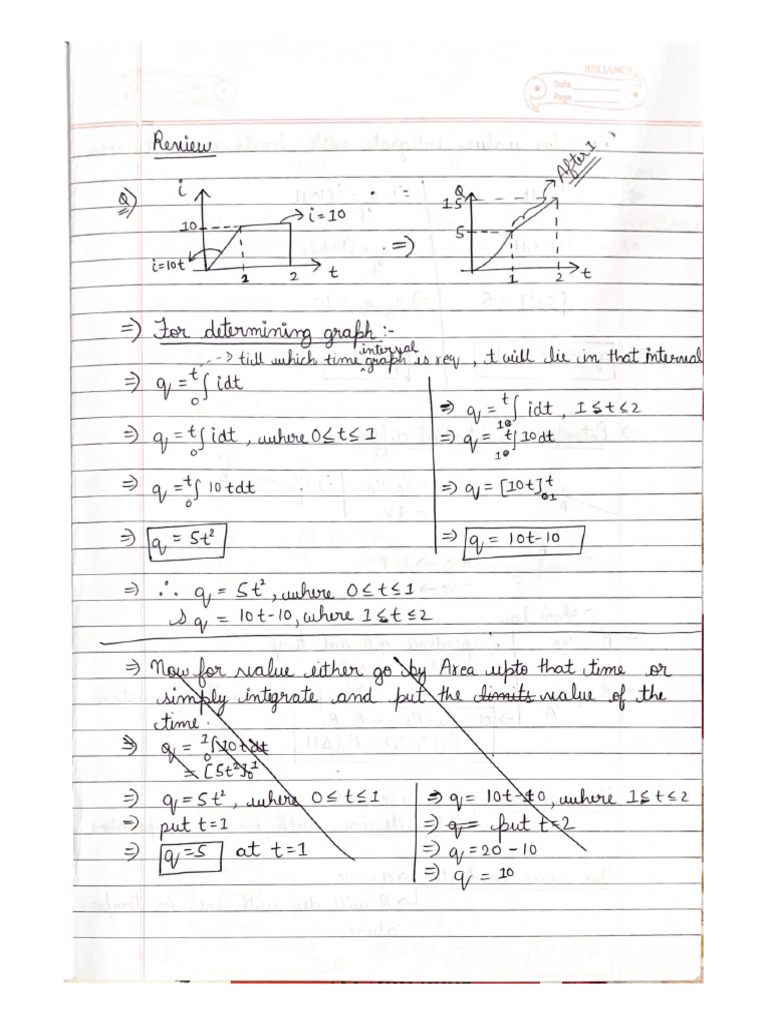 RELIANCE
Date
Page
Review
Q) i 10 i=10 i=10t 1 2 t
=) Q 15 5 1 2 t After 1
=) For determining graph :-
--> till which time interval graph is req, t will lie in that interval
=) q = t∫0 idt
=) q = t∫0 idt, where 0≤t≤1
=) q = t∫0 10tdt
=) q = 5t²
=) q = t∫1 idt, 1≤t≤2
=) q = t∫1 10dt
=) q = [10t]t1
=) q = 10t-10
=) ∴ q = 5t², where 0≤t≤1
& q = 10t-10, where 1≤t≤2
=) Now for value either go by Area upto that time or
simply integrate and put the limits value of the
time.
=) q = 1∫0 10tdt
= [5t²]10
=) q = 5t², where 0≤t≤1
=) put t=1
=) q=5 at t=1
=) q = 10t-10, where 1≤t≤2
=) q= put t=2
=) q=20-10
=) q = 10